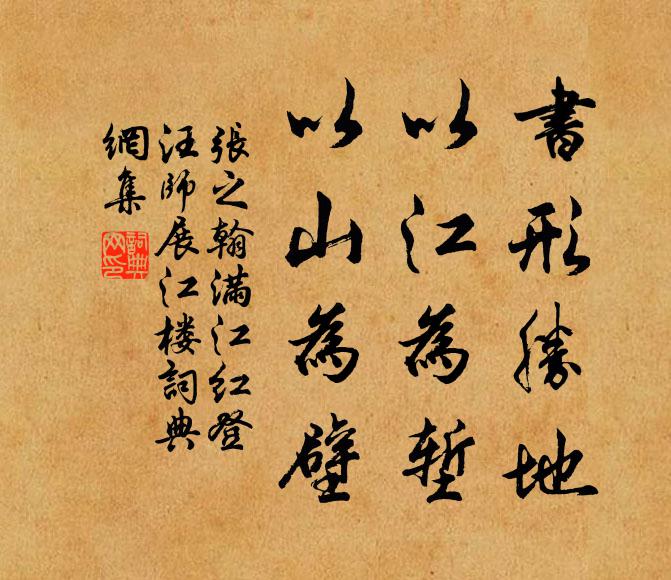 書形勝地
以江為塹
以山為壁
張之翰滿江红登
汪師展江楼詞典
網集
詞典
网印